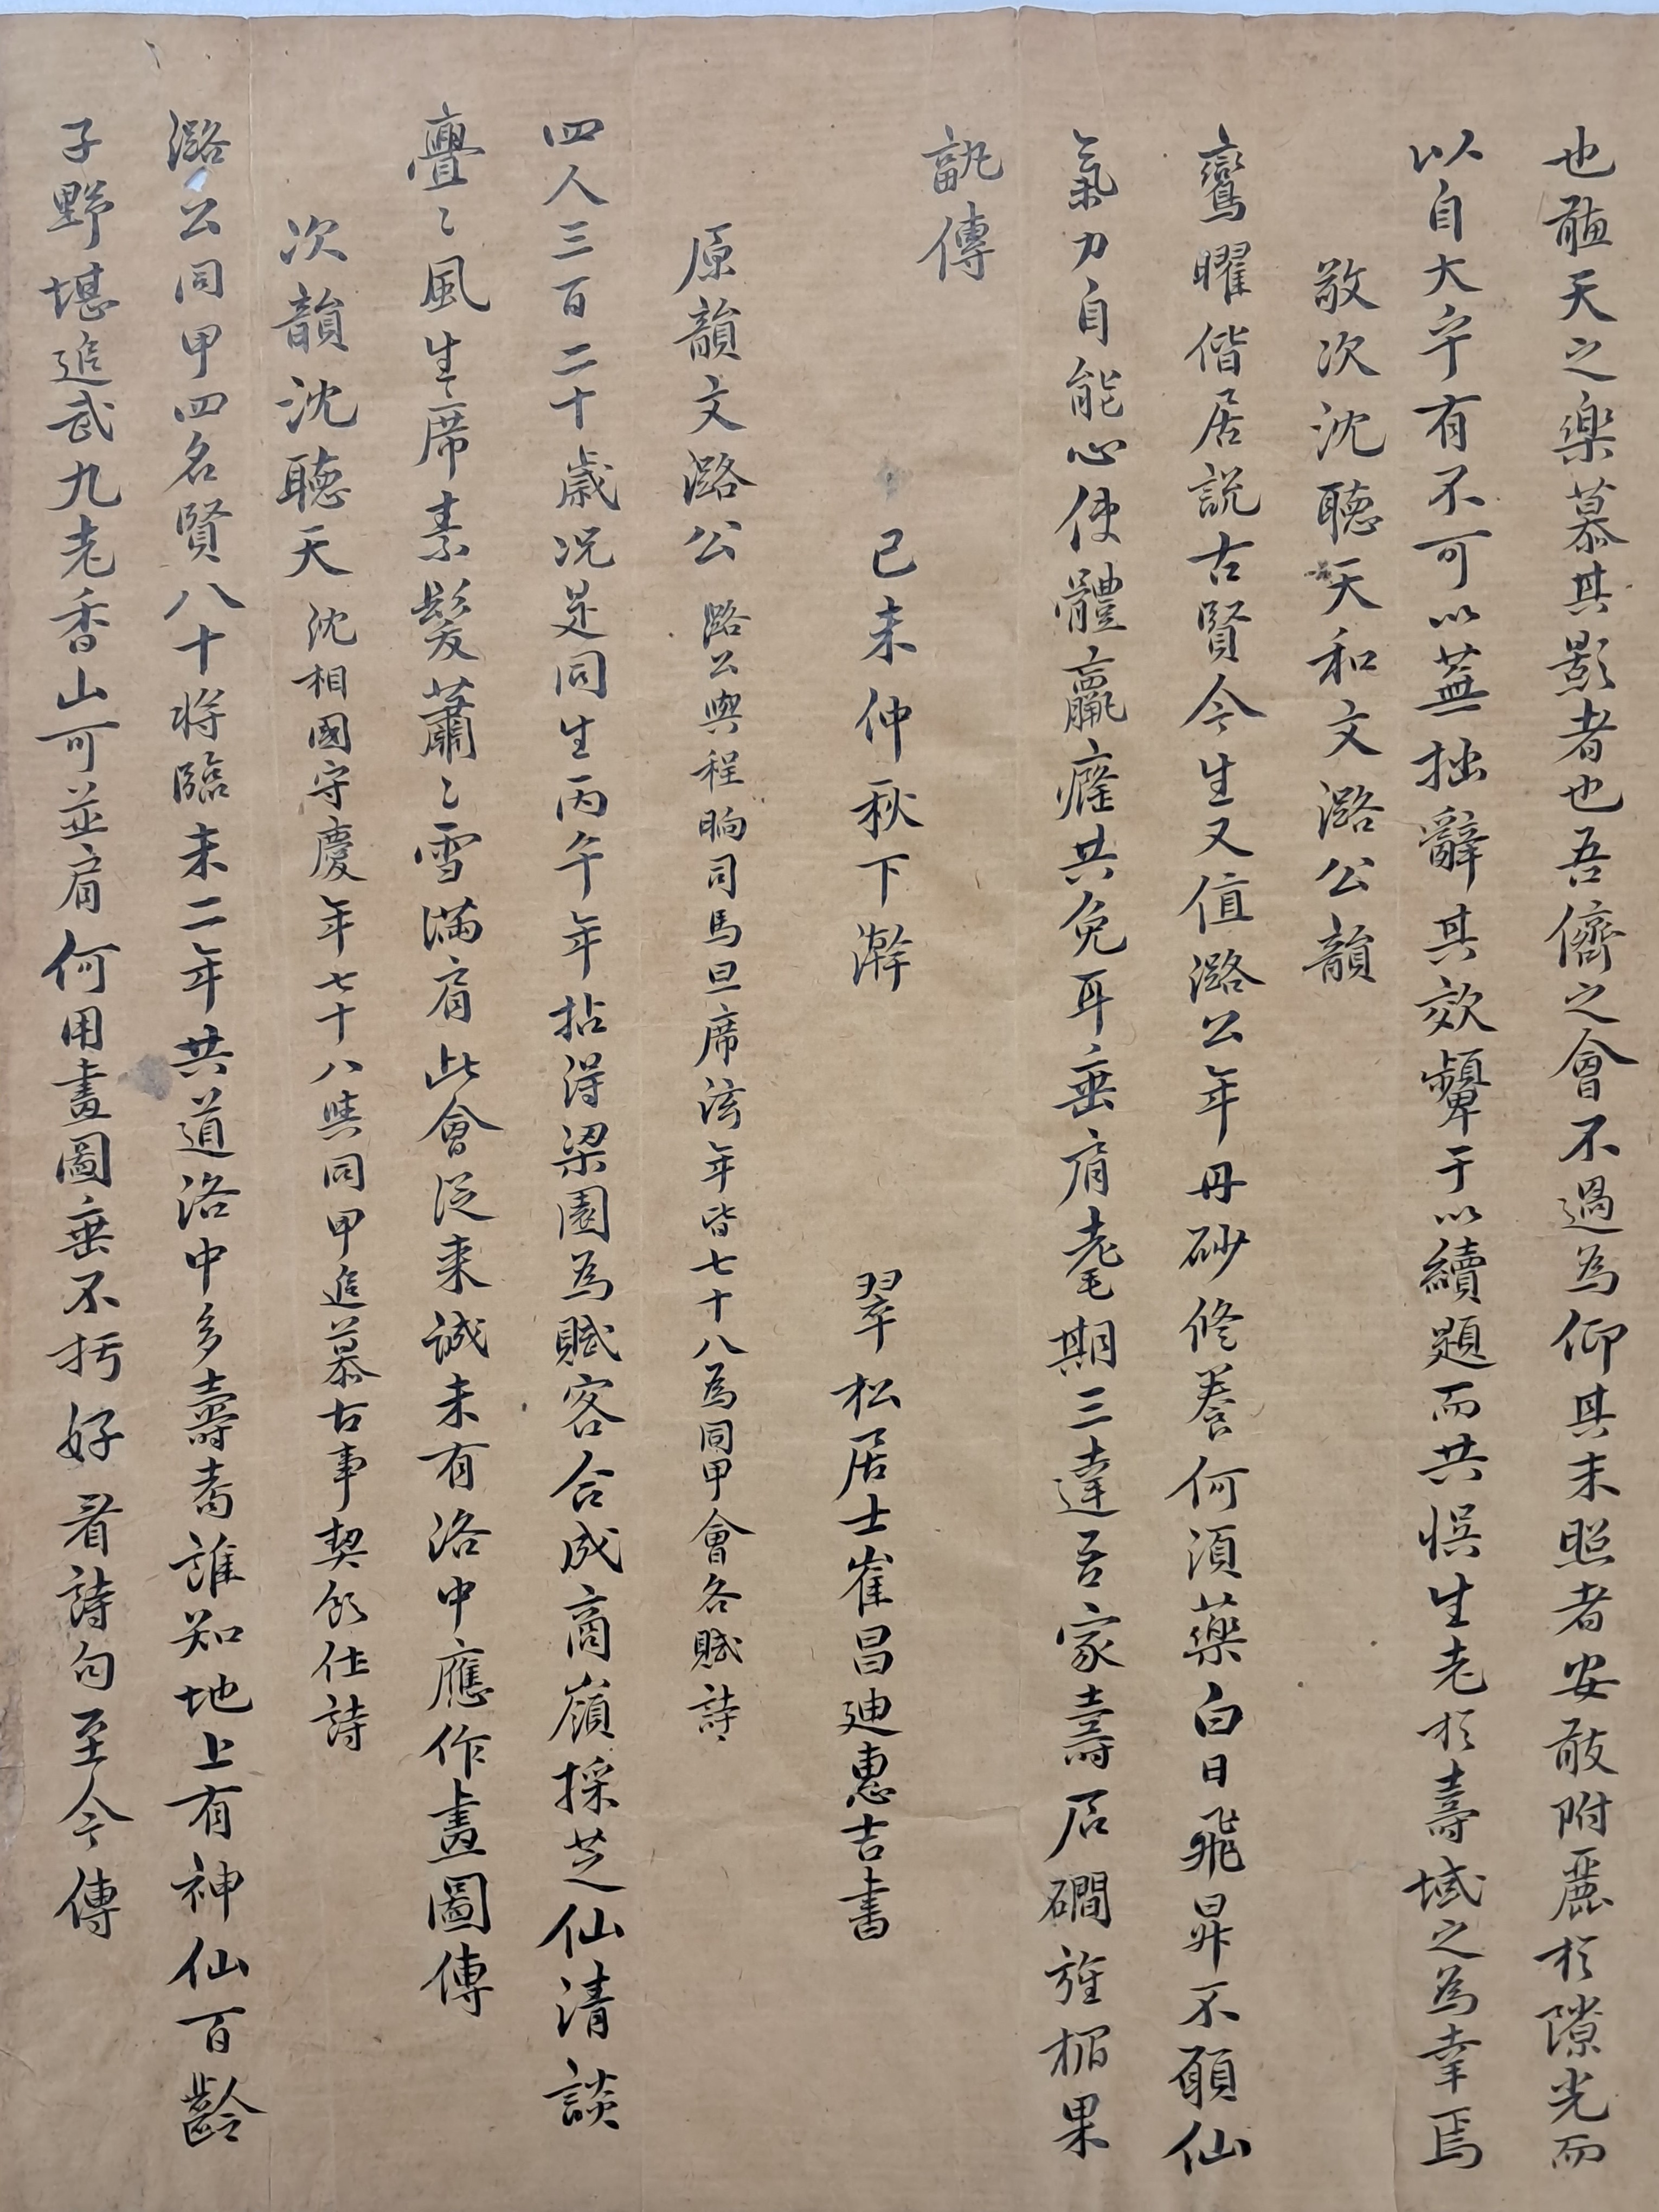 也髄天之樂慕其影者也吾儕之會不過為仰其末照者安敢附麗於隙光而
以自大乎有不可以蓋拙辭其效顰于以續題而共悞生老於壽域之為幸焉
敬次沈聽天和文潞公韻
鸞曜偕居說古賢今生又值潞公年丹砂修養何須藥白日飛昇不願仙
氣力自能心使體羸癃共免耳垂肩耄期三達吾家壽居磵旌楣果
孰傳
己未仲秋下澣 翠松居士崔昌迪惠吉書
原韻文潞公 潞公與程晌司馬旦席汯年皆七十八為同甲會各賦詩
四人三百二十歲况是同生丙午年拈得梁園為賦客合成商嶺採芝仙清談
亹〻風生席素髮蕭〻雪滿肩此會從来誠未有洛中應作畫圖傳
次韻沈聽天 沈相國守慶年七十八與同甲追慕古事契飲仕詩
潞公同甲四名賢八十將臨未二年共道洛中多壽耉誰知地上有神仙百齡
子野堪追武九老香山可並肩何用畫圖垂不朽好看詩句至今傳